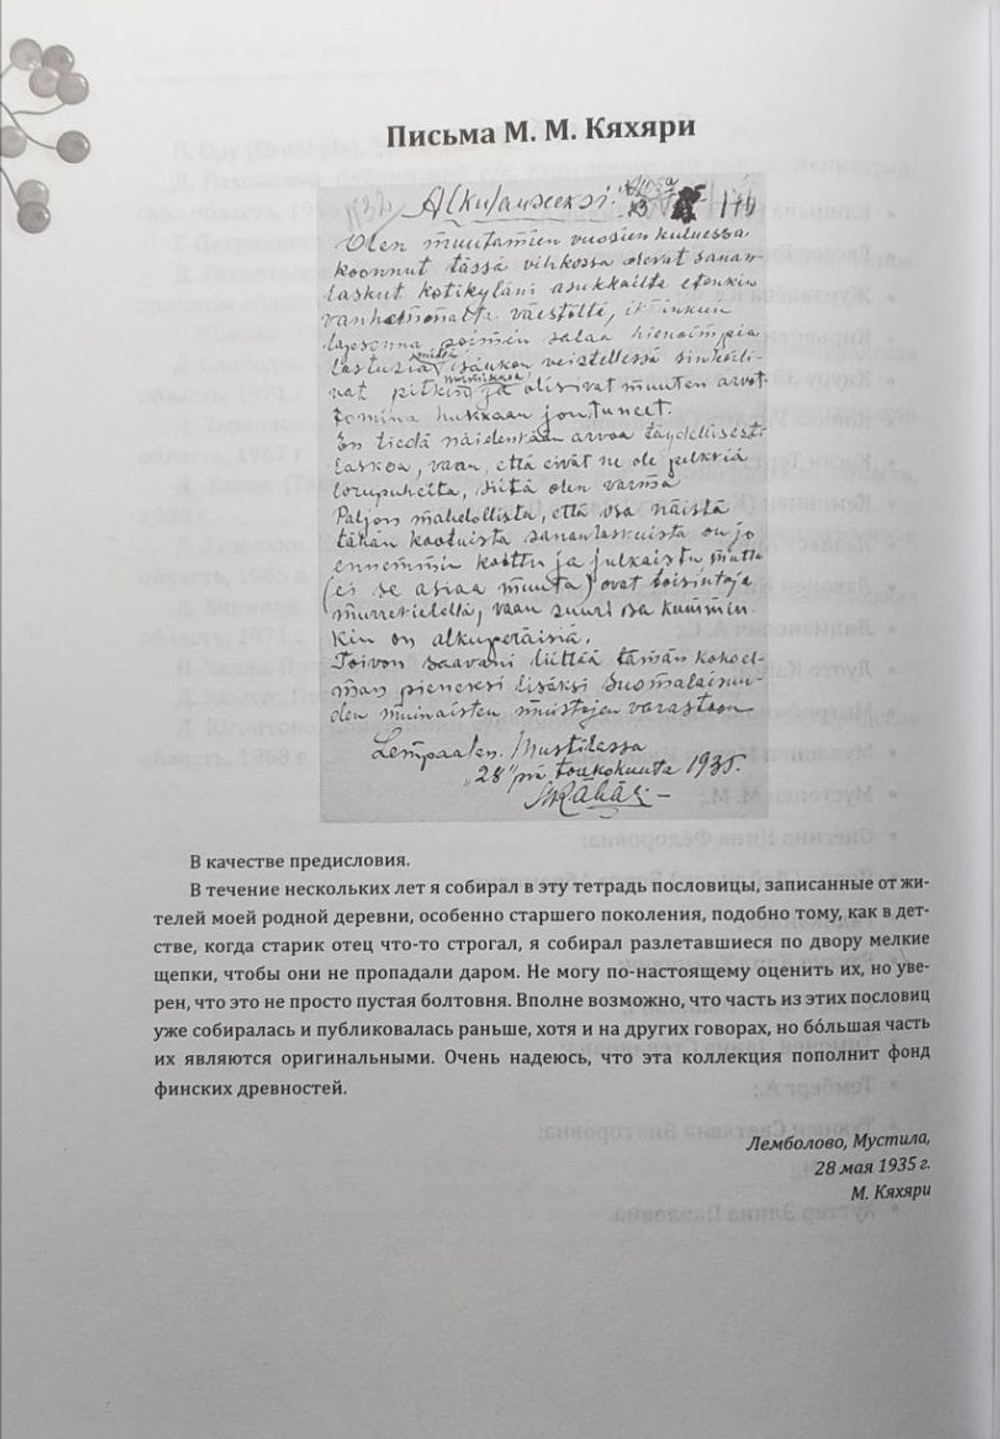 Письма М. М. Кяхяри
Alkulauseeksi.
Olen muutamien vuosien kuluessa
koonnut tässä vihkossa olevat sanan-
laskut kotikyläni asukkailta etenkin
vanhemmalta väestöltä,
lapsonna poimin salaa hienoimpia
lastuzia isäukon veistellessä sinkoili-
vat pitkin ja olisivat muuten arvot-
tomina hukkaan joutuneet.
En tiedä näidenkään arvoa täydellisesti
laskea, vaan, että eivät ne ole pelkkiä
lorupuheita, siitä olen varma
Paljon mahdollista, että osa näistä
tähän kootuista sananlaskuista on jo
ennemmin koottu ja julkaistu, mutta
(ei se asiaa muuta) ovat toisintoja
murrekielellä, vaan suuri osa kummin-
kin on alkuperäisiä.
Toivon saavani liittää tämän kokoel-
man pieneksi lisäksi Suomalaisuu-
den muinaisten muistojen varastoon
Lempaalan. Mustilassa
„28" p:nä toukokuuta 1935.
MKähäri
В качестве предисловия.
В течение нескольких лет я собирал в эту тетрадь пословицы, записанные от жи-
телей моей родной деревни, особенно старшего поколения, подобно тому, как в дет-
стве, когда старик отец что-то строгал, я собирал разлетавшиеся по двору мелкие
щепки, чтобы они не пропадали даром. Не могу по-настоящему оценить их, но уве-
рен, что это не просто пустая болтовня. Вполне возможно, что часть из этих пословиц
уже собиралась и публиковалась раньше, хотя и на других говорах, но бо́льшая часть
их являются оригинальными. Очень надеюсь, что эта коллекция пополнит фонд
финских древностей.
Лемболово, Мустила,
28 мая 1935 г.
М. Кяхяри